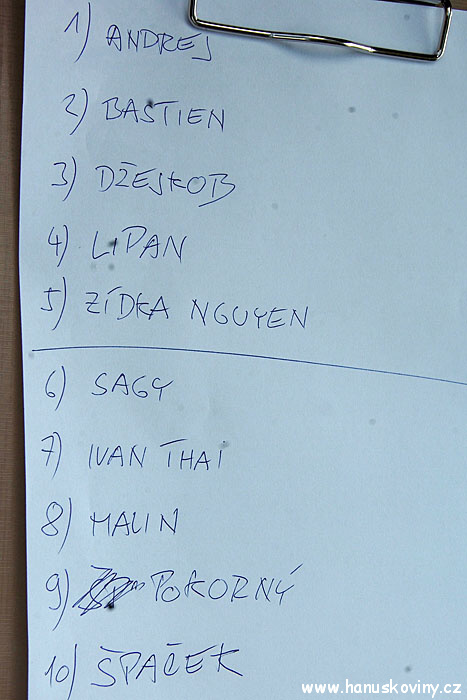 1) ANDREJ
2) BASTIEN
3) DŽEJKOB
4) LIPAN
5) ZÍDKA NGUYEN
6) SAGY
7) IVAN THAI
8) MALIN
9) POKORNÝ
10) ŠPAČEK
www.hanuskoviny.cz